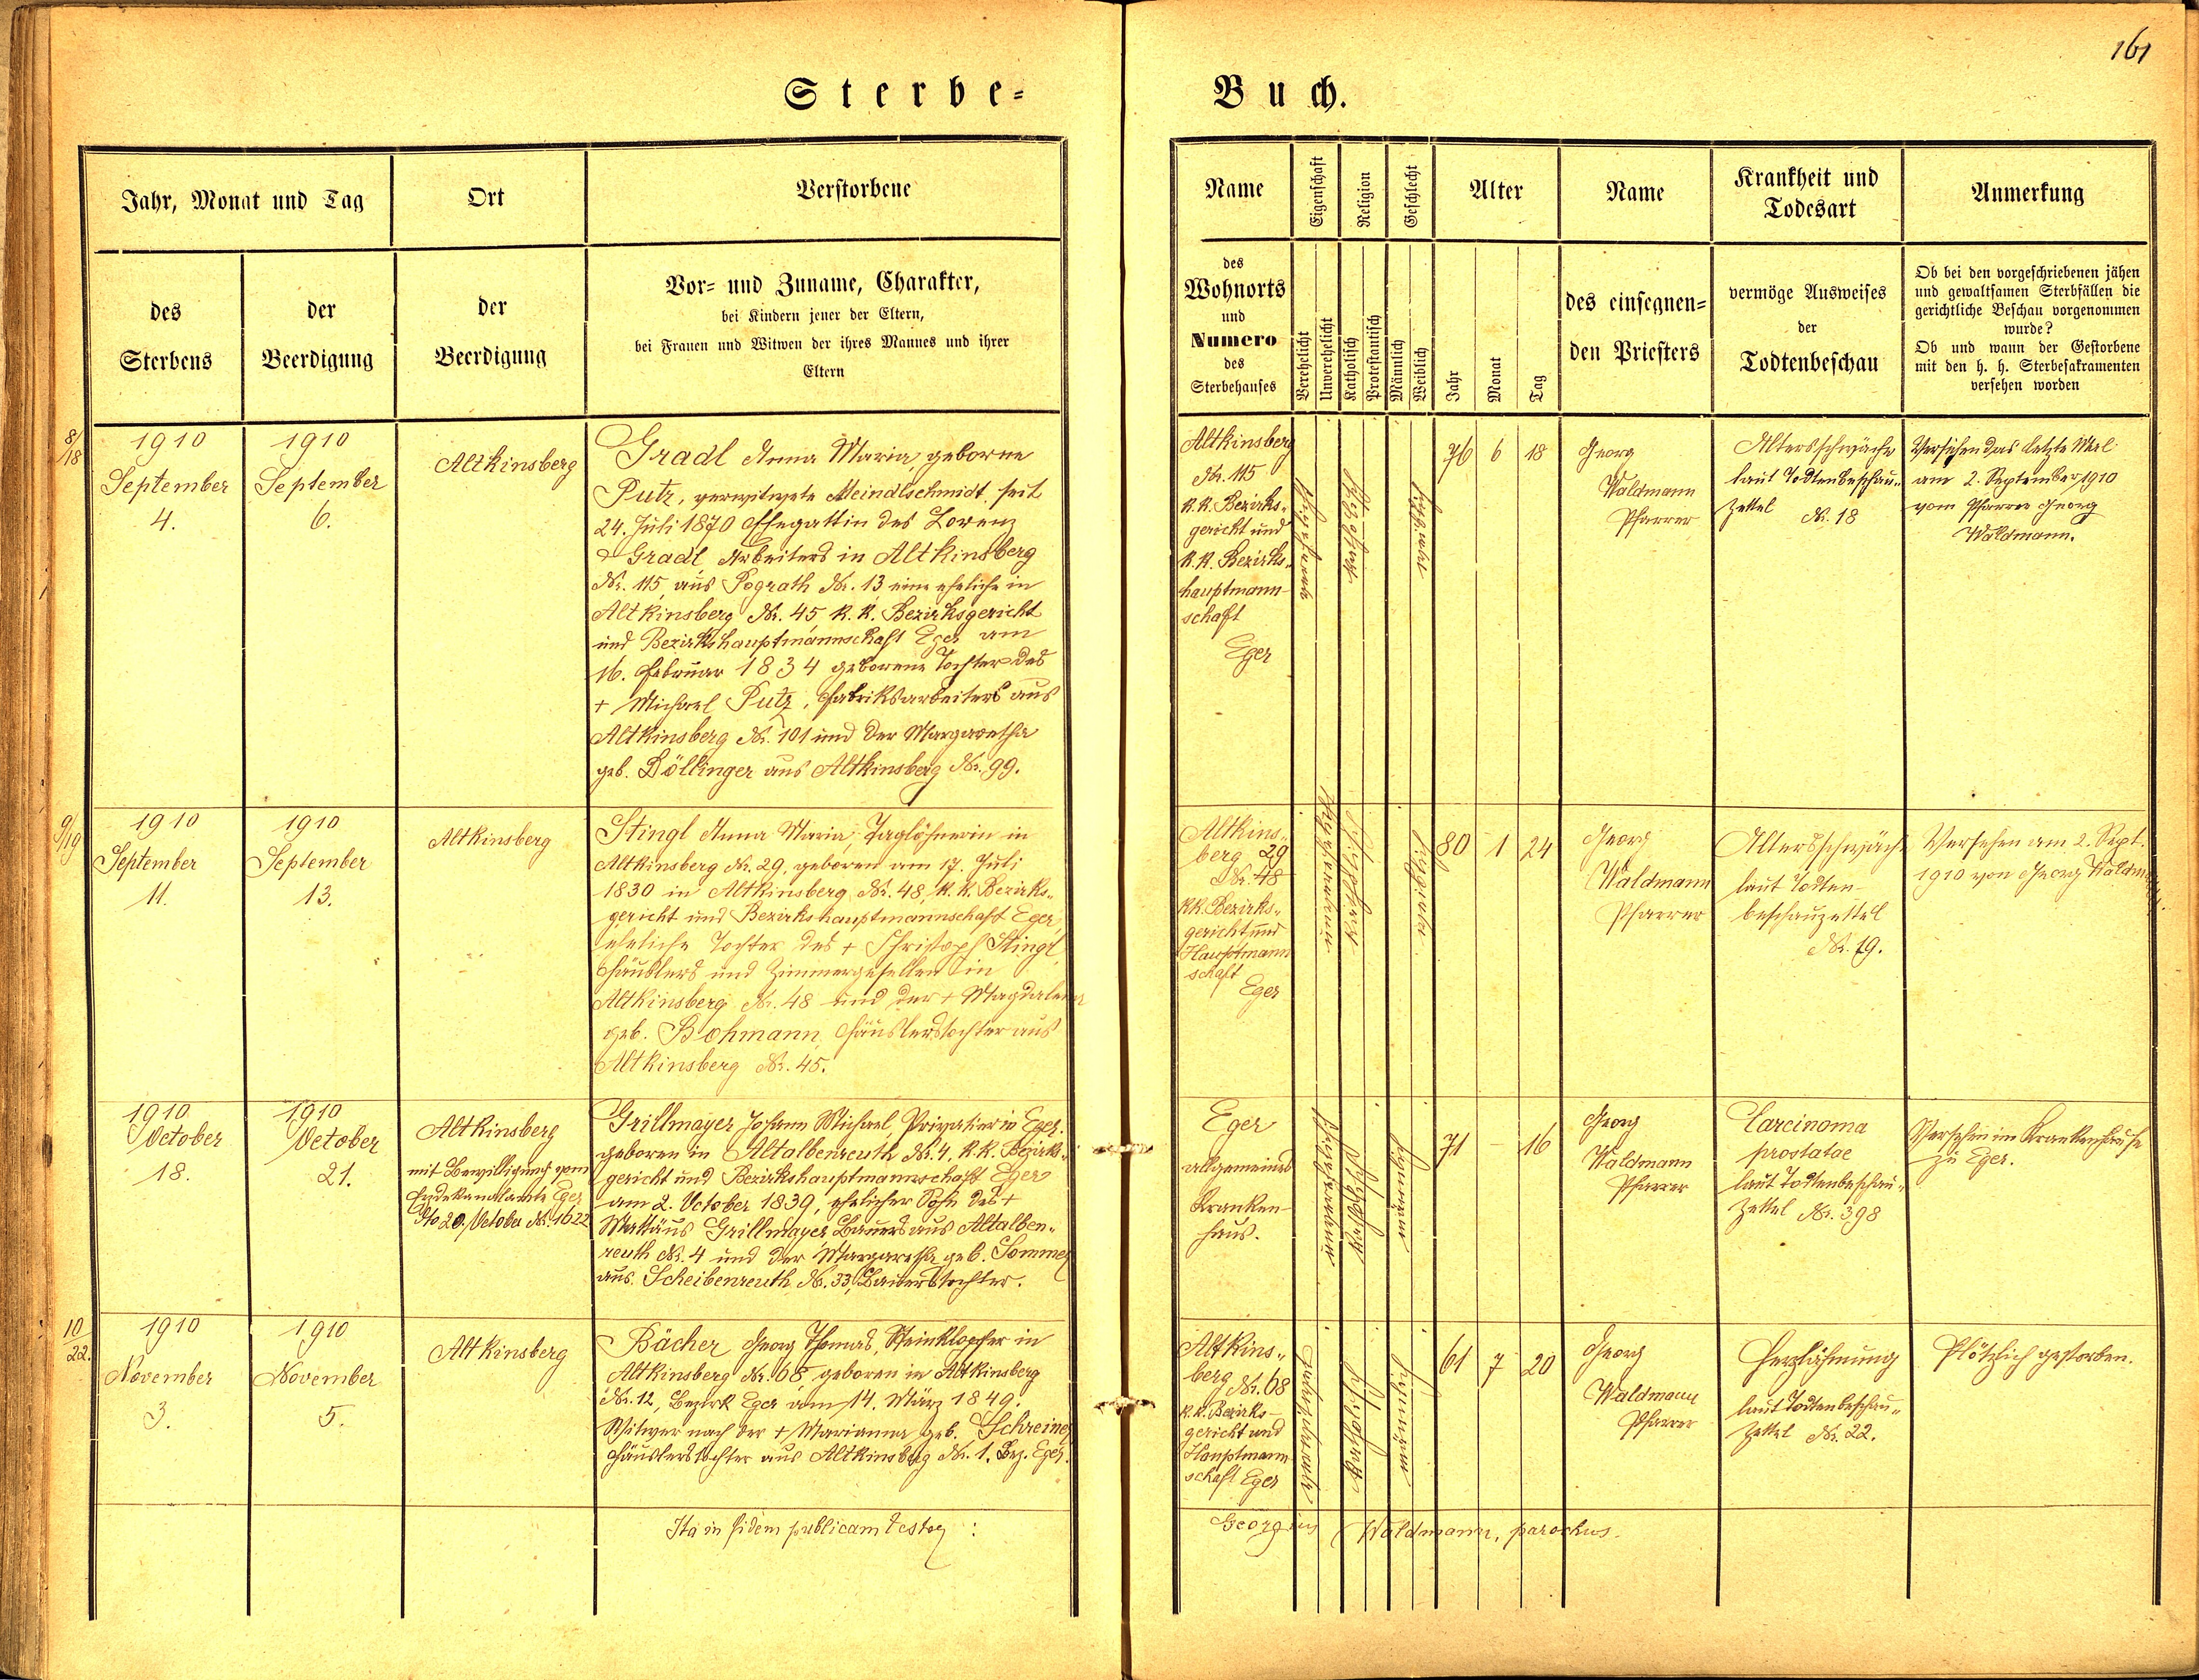 161
Sterbe-
Buch.
Jahr, Monat und Tag
Ort
Verstorbene
des
Sterbens
der
Beerdigung
der
Beerdigung
Vor- und Zuname, Charakter,
bei Kindern jener der Eltern,
bei Frauen und Witwen der ihres Mannes und ihrer
Eltern
Name
Eigenschaft
Religion
Geschlecht
Alter
Name
Krankheit und
Todesart
Anmerkung
des
Wohnorts
und
Numero
des
Sterbehauses
Verehelicht
Unverehelicht
Katholisch
Protestantisch
Männlich
Weiblich
Jahr
Monat
Tag
des einsegnen-
den Priesters
vermöge Ausweises
der
Todtenbeschau
Ob bei den vorgeschriebenen jähen
und gewaltsamen Sterbfällen die
gerichtliche Beschau vorgenommen
wurde?
Ob und wann der Gestorbene
mit den h. h. Sterbesakramenten
versehen worden
8/18
1910
September
4.
1910
September
6.
Altkinsberg
Gradl Anna Maria, geborne
Putz, verwitwete Meindlschmidt, seit
24. Juli 1870 Ehegattin des Lorenz
Gradl Arbeiters in Altkinsberg
Nr. 115, aus Pograth Nr. 13 eine eheliche in
Altkinsberg Nr. 45 k. k. Bezirksgericht
und Bezirkshauptmannschaft Eger am
16. Februar 1834 geborene Tochter des
+ Michael Putz, Fabriksarbeiters aus
Altkinsberg Nr. 101 und der Margaretha
geb. Döllinger aus Altkinsberg Nr. 99.
Altkinsberg
Nr. 115
k. k. Bezirks-
gericht und
k. k. Bezirks-
hauptmann-
schaft
Eger
76 6 18
Georg
Waldmann
Pfarrer
Altersschwäche
laut Todtenbeschau-
zettel Nr. 18
Versehen das letzte Mal
am 2. September 1910
vom Pfarrer Georg
Waldmann.
9/19
1910
September
11.
1910
September
13.
Altkinsberg
Stingl Anna Maria, Taglöhnerin in
Altkinsberg Nr. 29, geboren am 17. Juli
1830 in Altkinsberg Nr. 48, k. k. Bezirks-
gericht und Bezirkshauptmannschaft Eger,
eheliche Tochter des + Christoph Stingl
Häuslers und Zimmergesellen in
Altkinsberg Nr. 48 und der + Magdalena
geb. Bohmann, Häuslerstochter aus
Altkinsberg Nr. 45.
Altkins-
berg 29
Nr. 48
kk. Bezirks-
gericht und
Hauptmann
schaft
Eger
80 1 24
Georg
Waldmann
Pfarrer
Altersschwäche
laut Todten-
beschauzettel
Nr. 19.
Versehen am 2. Sept.
1910 von Georg Waldmann
1910
October
18.
1910
October
21.
Altkinsberg
mit Bewilligung vom
Eger
dto 20. October Nr. 1622
Grillmayer Johann Michael, Privatier in Eger.
geboren in Altalbenreuth Nr. 4, k. k. Bezirks-
gericht und Bezirkshauptmannschaft Eger
am 2. October 1839, ehelicher Sohn des +
Mathäus Grillmayer Bauers aus Altalben-
reuth Nr. 4 und der Margaretha geb. Sommer
aus Scheibenreuth Nr. 33, Bauerstochter.
Eger
allgemeines
Kranken-
haus.
71 — 16
Georg
Waldmann
Pfarrer
Carcinoma
prostatae
laut Todtenbeschau-
zettel Nr. 398
Versehen im Krankenhause
zu Eger.
10/22.
1910
November
3.
1910
November
5.
Altkinsberg
Bächer Georg Thomas, Steinklopfer in
Altkinsberg Nr. 68 geboren in Altkinsberg
Nr. 12, Bezirk Eger am 14. März 1849.
Witwer nach der + Marianna geb. Schreiner
Häuslerstochter aus Altkinsberg Nr. 1. Bez. Eger.
Altkins-
berg Nr. 68
k. k. Bezirks-
gericht und
Hauptmann
schaft Eger
61 7 20
Georg
Waldmann
Pfarrer
Herzlähmung
laut Todtenbeschau-
zettel Nr. 22.
Plötzlich gestorben.
Ita in fidem publicam testor:
Georgius Waldmann, parochus.